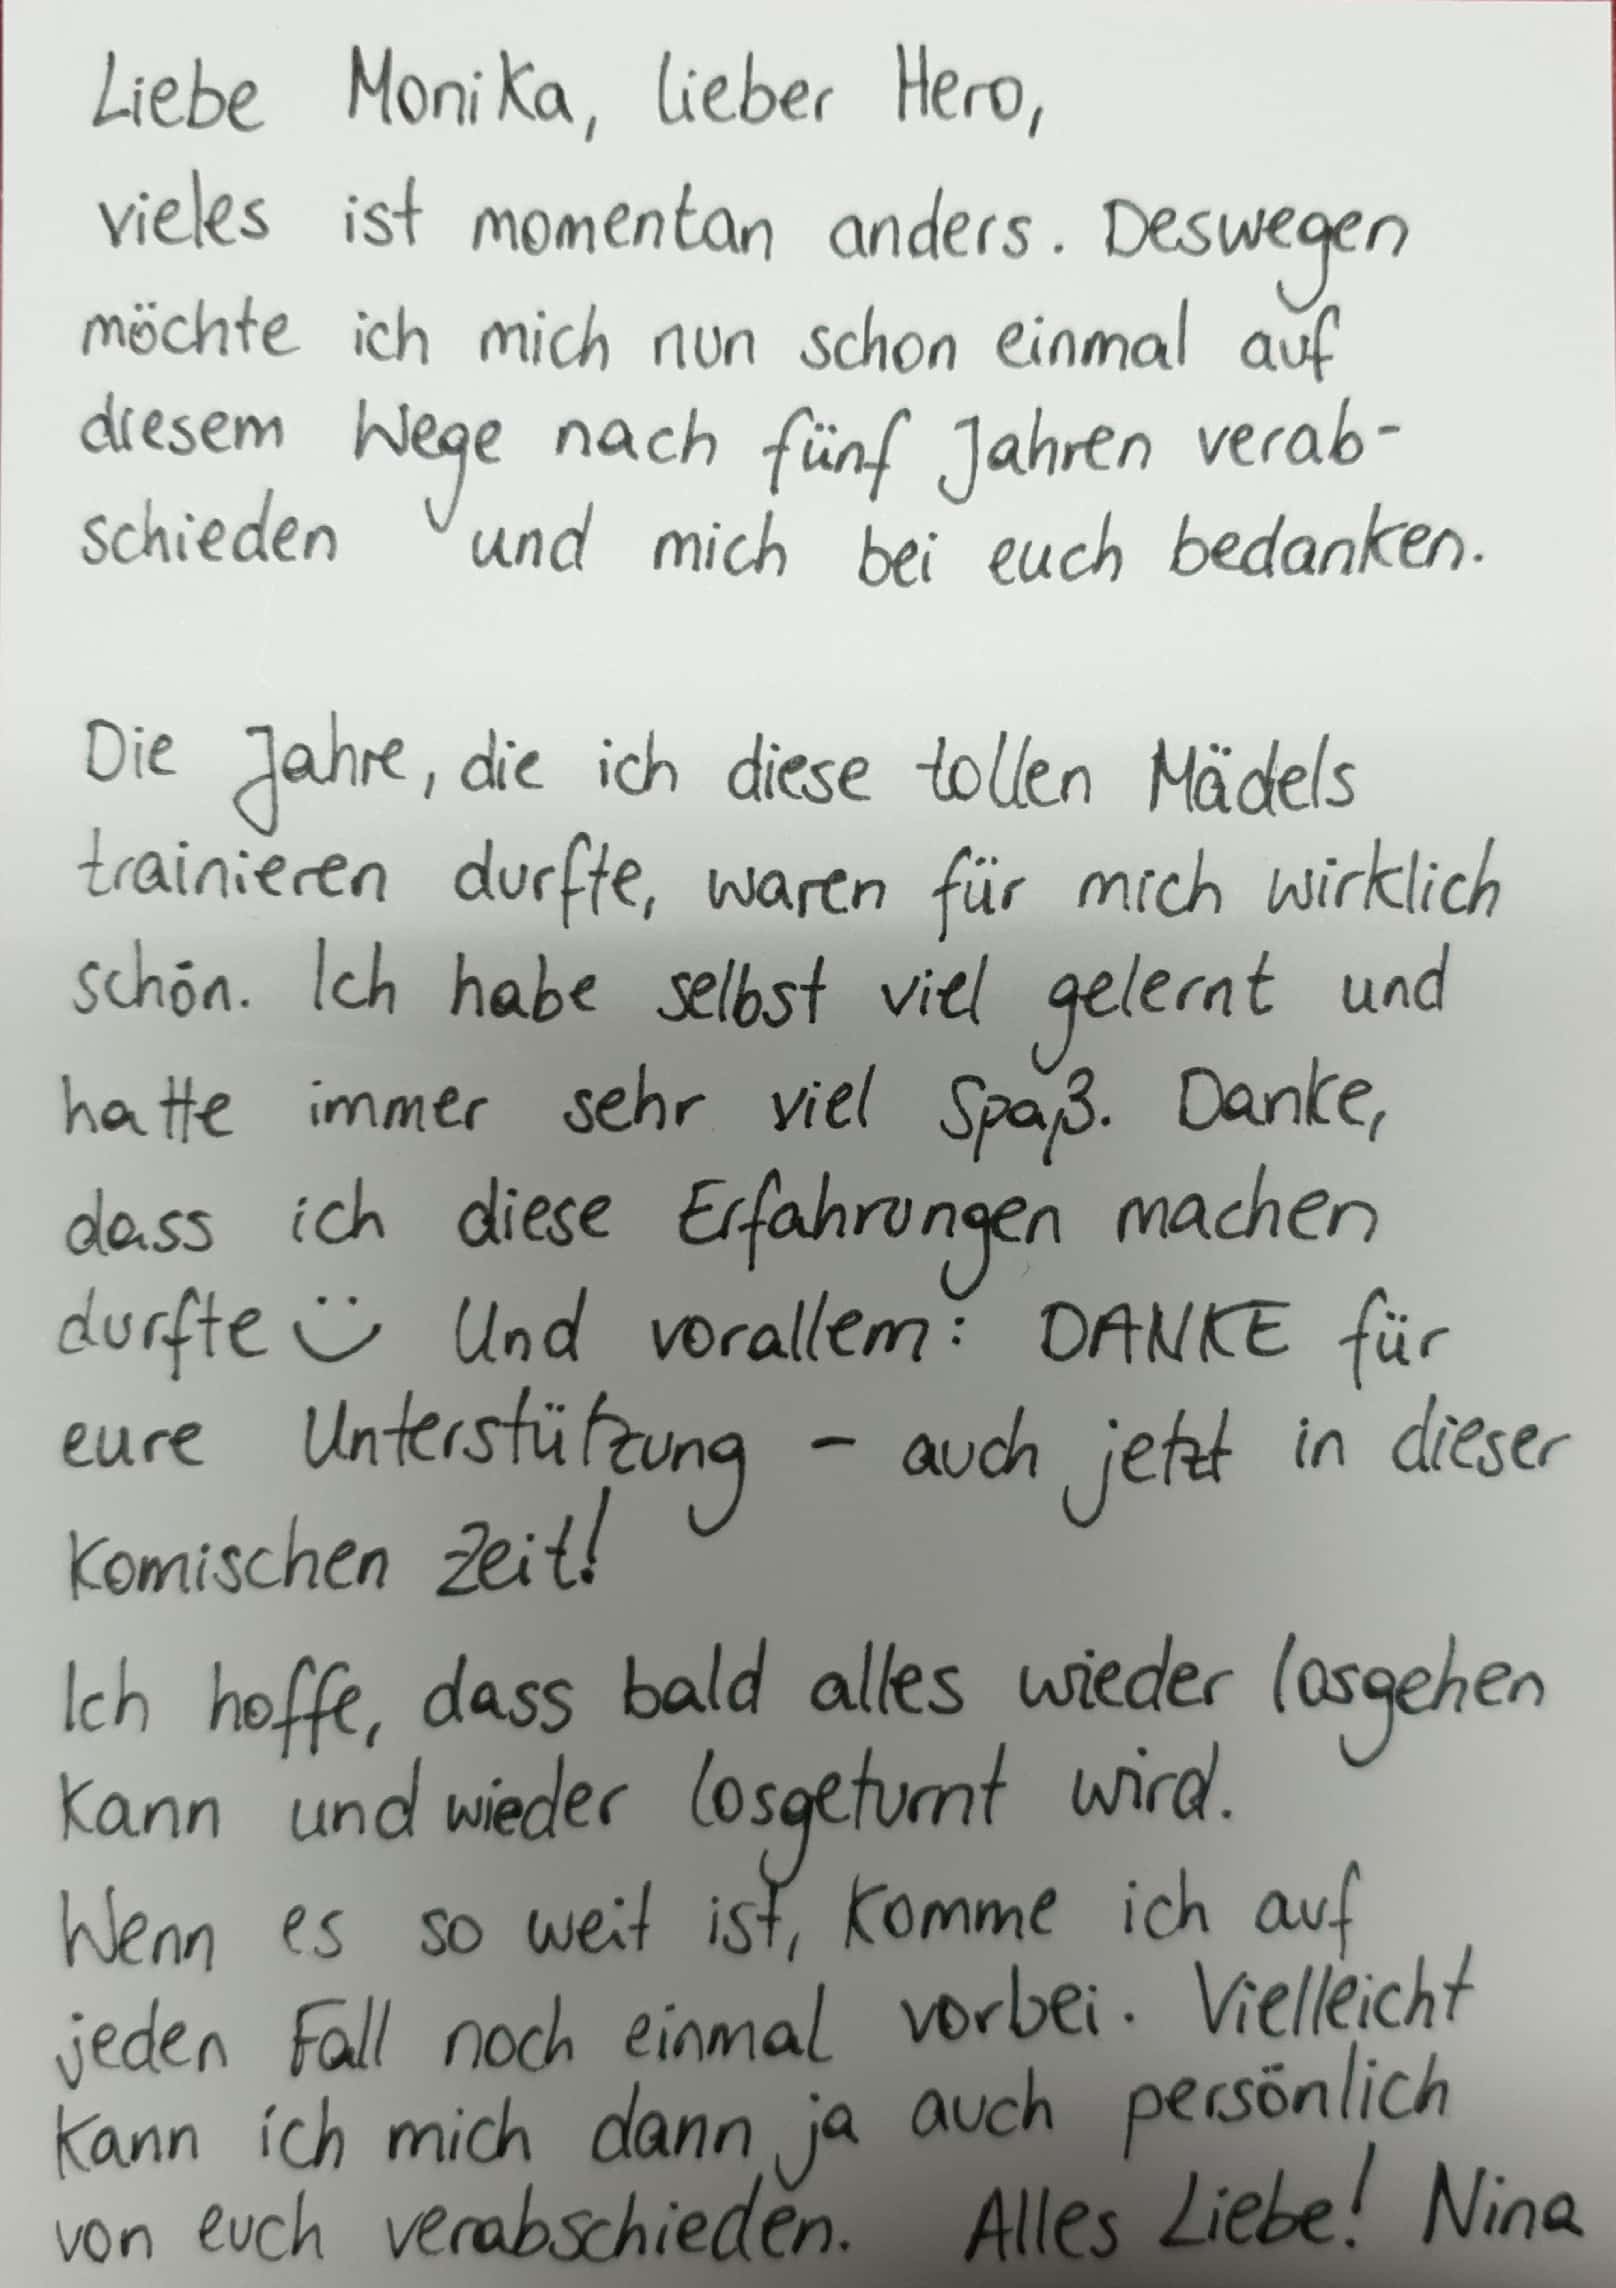 Liebe Monika, lieber Hero,
vieles ist momentan anders. Deswegen
möchte ich mich nun schon einmal auf
diesem Wege nach fünf Jahren verab-
schieden und mich bei euch bedanken.
Die Jahre, die ich diese tollen Mädels
trainieren durfte, waren für mich wirklich
schön. Ich habe selbst viel gelernt und
hatte immer sehr viel Spaß. Danke,
dass ich diese Erfahrungen machen
durfte ☺ Und vorallem: DANKE für
eure Unterstützung - auch jetzt in dieser
komischen Zeit!
Ich hoffe, dass bald alles wieder losgehen
kann und wieder losgeturnt wird.
Wenn es so weit ist, komme ich auf
jeden Fall noch einmal vorbei. Vielleicht
kann ich mich dann ja auch persönlich
von euch verabschieden. Alles Liebe! Nina